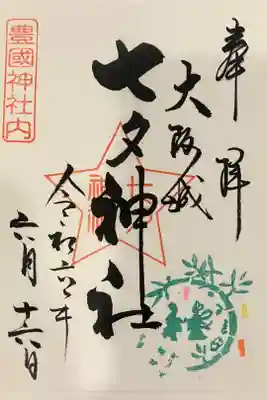 奉拝
大阪城
七夕神社
令和六年
六月十六日
豊國神社内